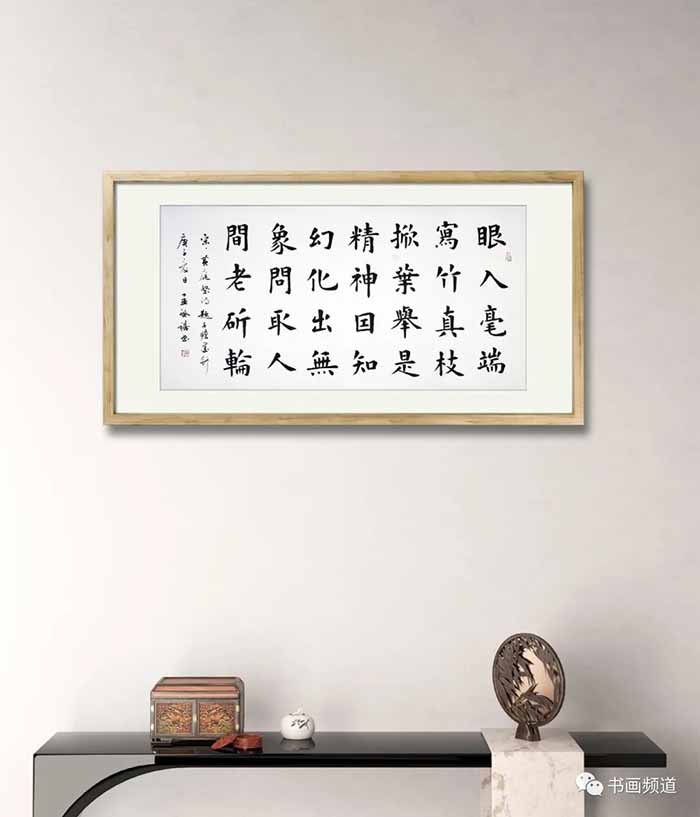 眼入毫端
寫竹真枝
掀葉舉是
精神囙知
幻化出無
象問取人
間老斫輪
宋·黄庭堅詩題子瞻墨竹
庚子夏日
书画频道